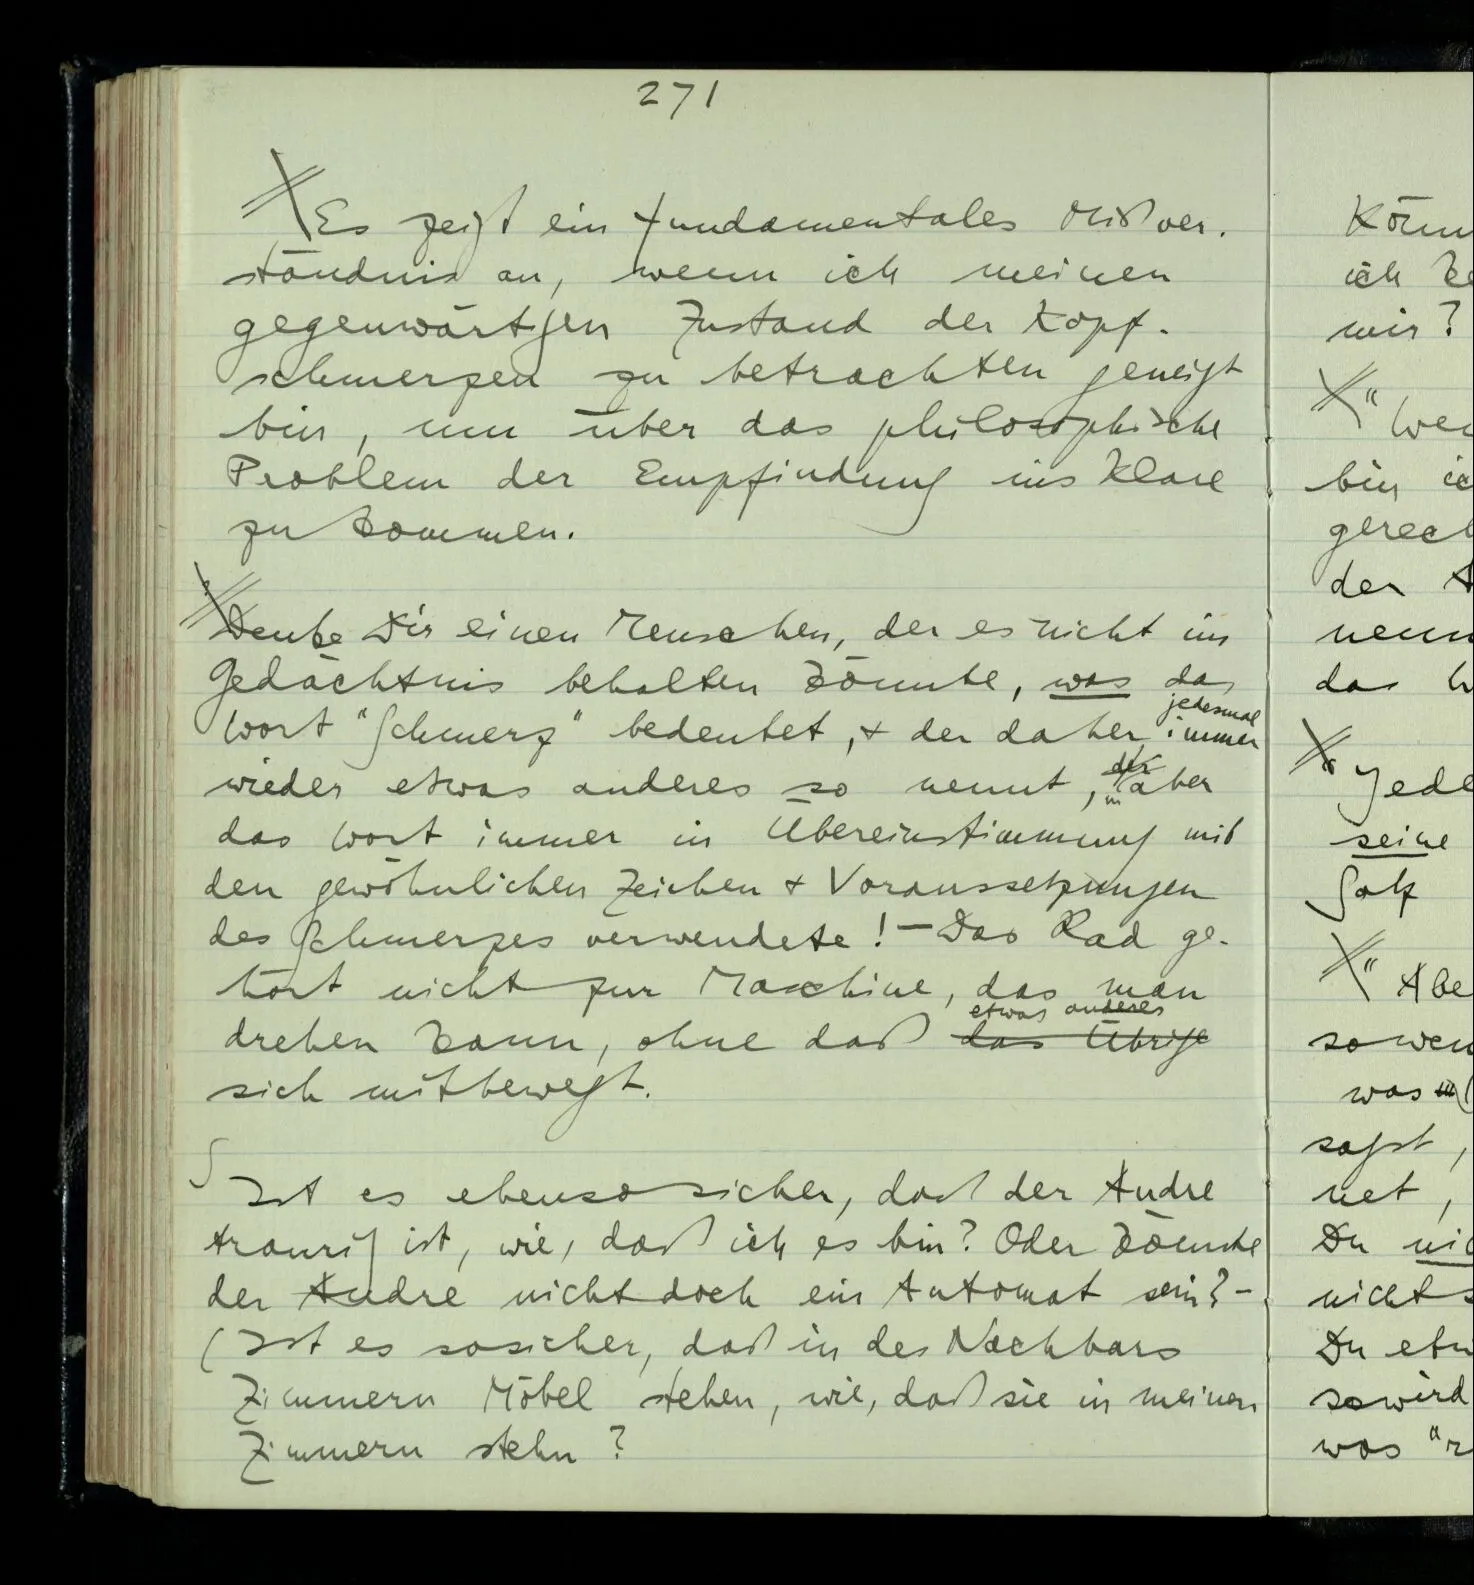 271
Es zeigt ein fundamentales Mißver-
ständnis an, wenn ich meinen
gegenwärtigen Zustand der Kopf-
schmerzen zu betrachten geneigt
bin, um über das philosophische
Problem der Empfindung ins Klare
zu kommen.
Denke Dir einen Menschen, der es nicht im
Gedächtnis behalten könnte, was das
jedesmal
Wort "Schmerz" bedeutet, + der daher immer
wieder etwas anderes so nennt, aber
das Wort immer in Übereinstimmung mit
den gewöhnlichen Zeichen + Voraussetzungen
des Schmerzes verwendete! – Das Rad ge-
hört nicht zur Maschine, das man
etwas anderes
drehen kann, ohne daß das Übrige
sich mitbewegt.
∫
Ist es ebenso sicher, daß der Andre
traurig ist, wie, daß ich es bin? Oder könnte
der Andre nicht doch ein Automat sein? –
(Ist es so sicher, daß in des Nachbars
Zimmern Möbel stehen, wie, daß sie in meinen
Zimmern stehn?
Könn
ich ke
mir?
"We
bin ic
gerec
der A
nenn
das W
"Jede
seine
Satz
"Abe
sowen
was (
sagst,
net,
Du nic
nichts
Du etw
so wird
was "r